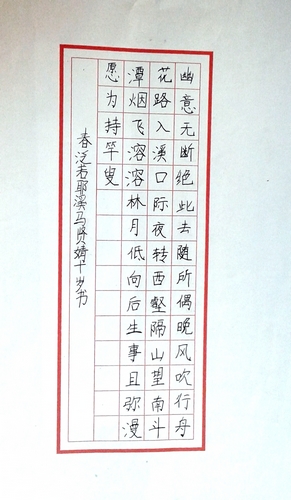 幽意无断绝此去随所偶晚风吹行舟
花路入溪口际夜转西壑隔山望南斗
潭烟飞溶溶林月低向后生事且弥漫
愿为持竿叟
春泛若耶溪马贤婧十岁书